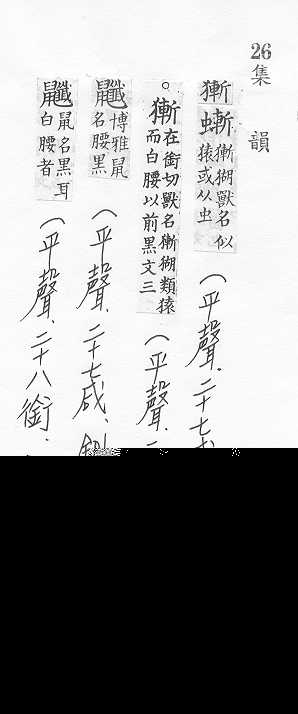 26集韻
獑螹獑猢獸名似猿或从虫（平聲．二十七
。獑在銜切獸名獑猢類猿而白腰以前黑文三（平聲．二
博雅鼠名腰黑（平聲．二十七咸．
鼠名黑耳白腰者（平聲．二十八銜．